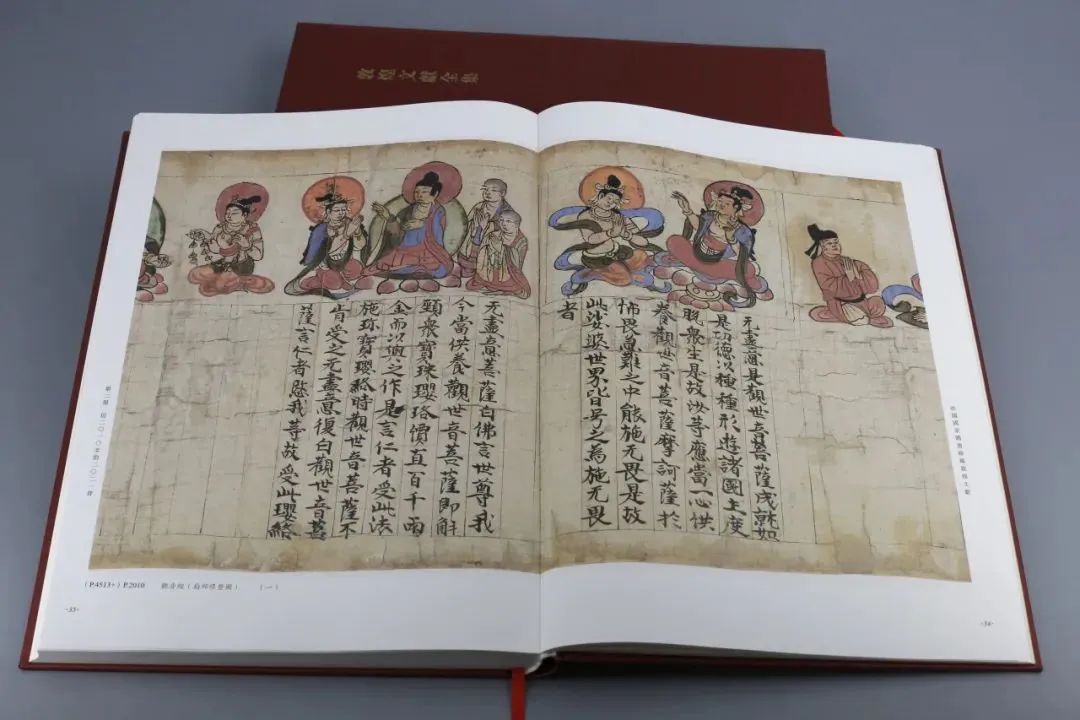 敦煌文獻全集
无盡意是觀世音菩薩成就如
是功德以種種形遊諸國土度
脫衆生是故汝等應當一心供
養觀世音菩薩摩訶薩於
怖畏急難之中能施无畏是故
此娑婆世界皆号之為施无畏
者
无盡意菩薩白佛言世尊我
今當供養觀世音菩薩即解
頸衆寶珠瓔珞價直百千兩
金而以與之作是言仁者受此法
施珎寶瓔珞時觀世音菩薩不
肯受之无盡意復白觀世音菩
薩言仁者愍我等故受此瓔珞
(P.4513+) P.2010 觀音經 (一)
·33·
·34·